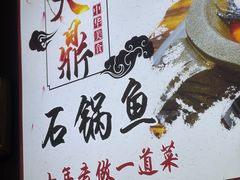 鼎
中华美食
石锅鱼
做一道菜